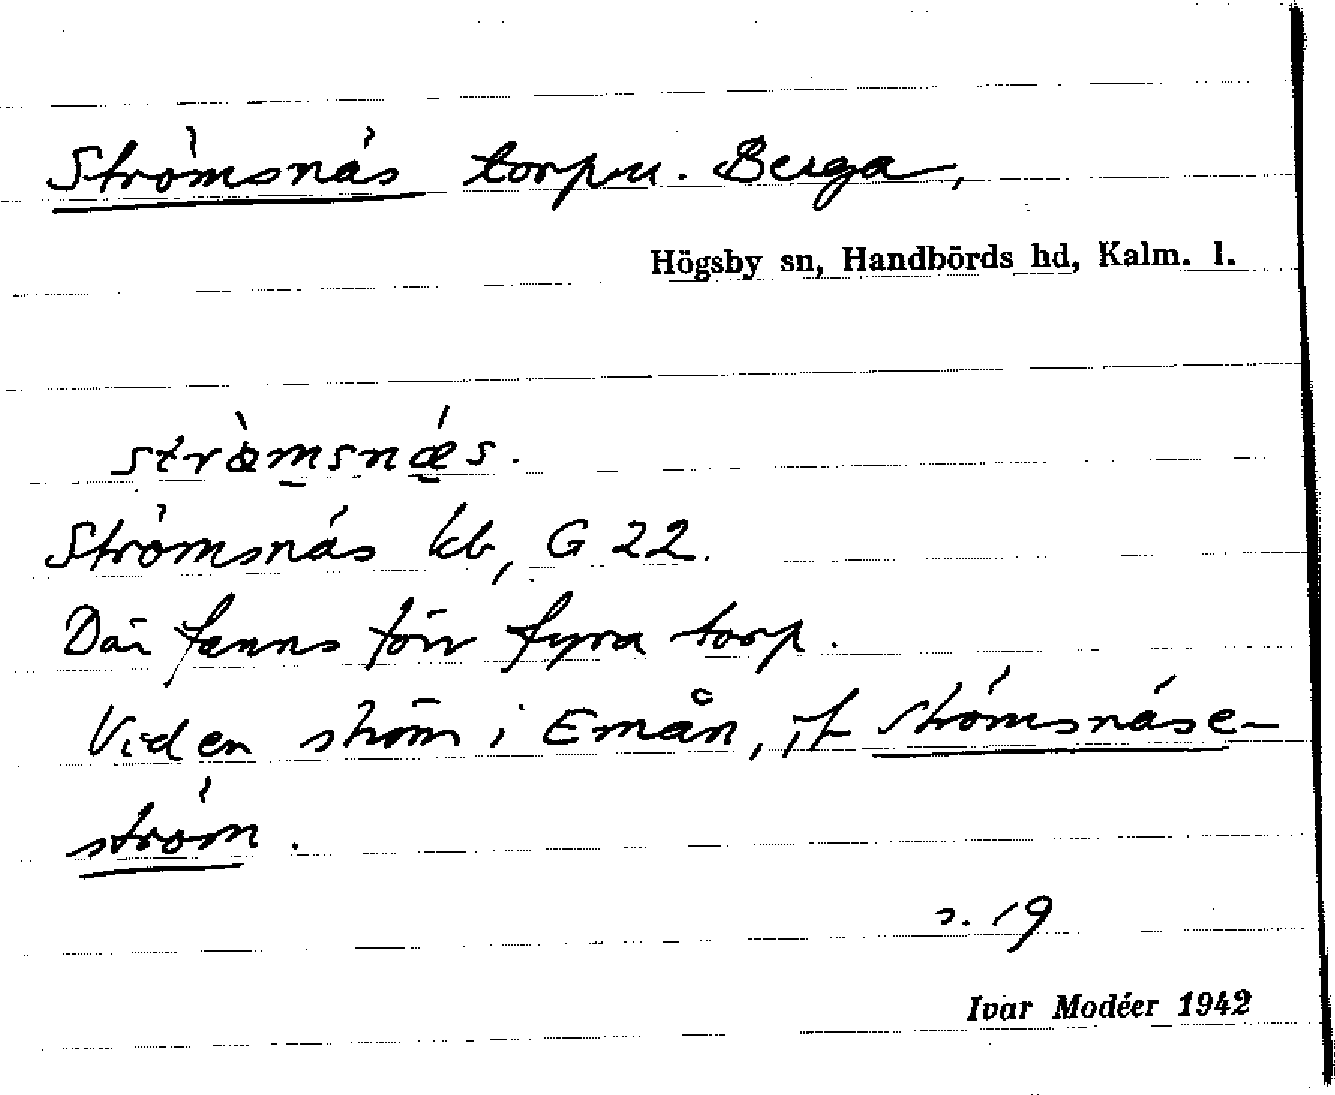 Strömsnäs torp u. Berga,
Högsby sn, Handbörds hd, Kalm. l.
stræ̀msnǽs.
Strömsnäs kb, G 22.
Där fanns förr fyra torp.
Vid en ström i Emån, jf Strömsnäse-
ström.
s. 19
Ivar Modéer 1942